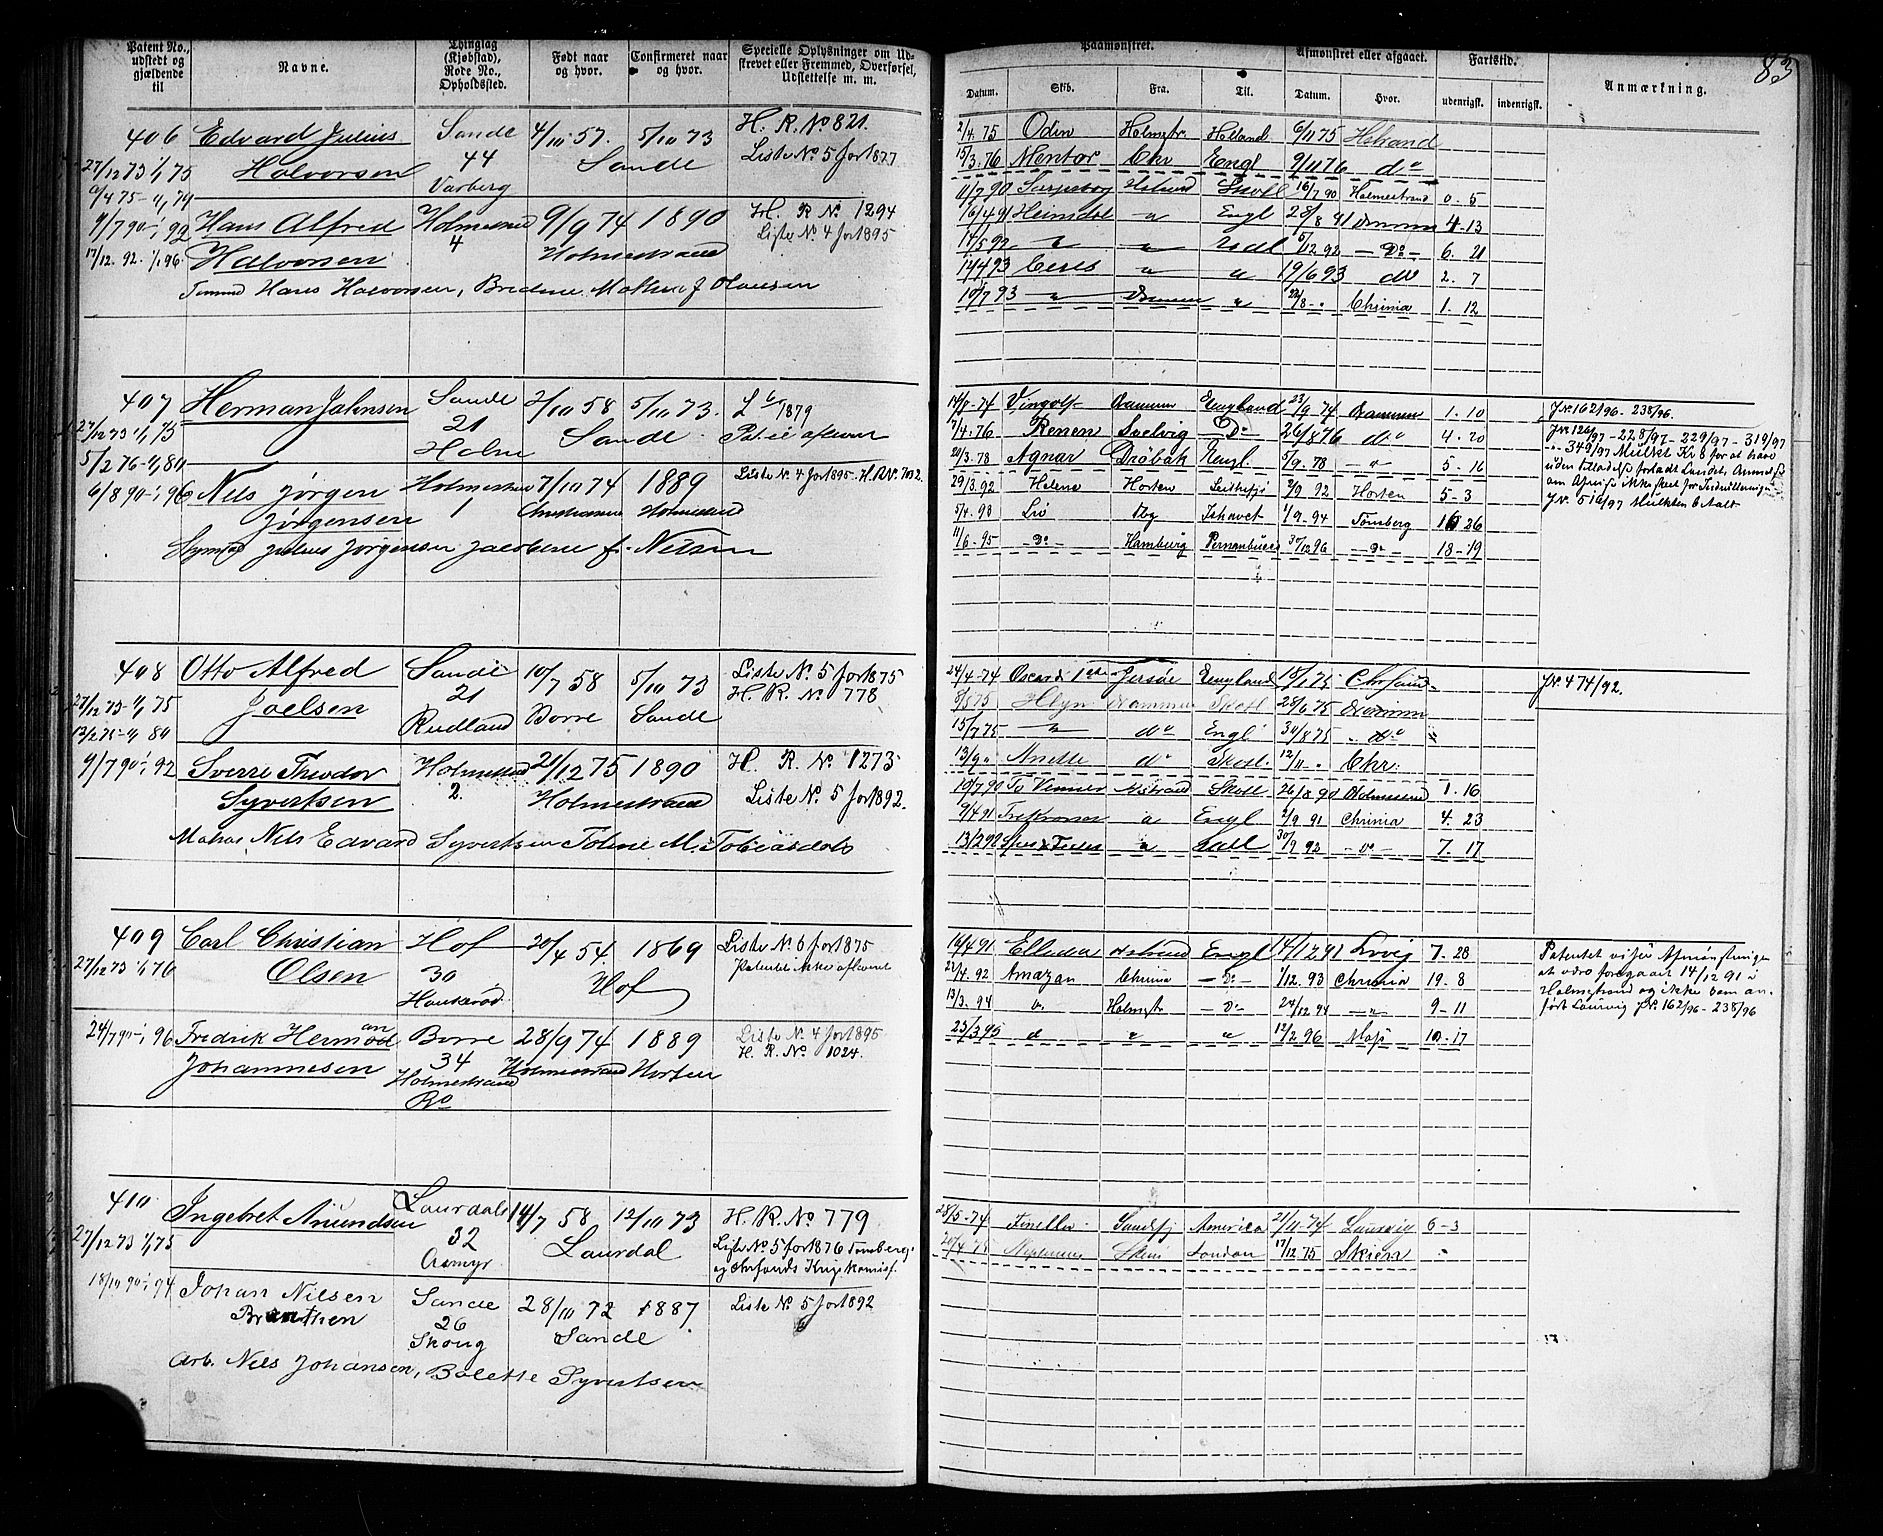 83
Patent No., udstedt og gjældende til
Navne.
Thinglag (Kjøbstad), Rode No., Opholdssted.
Født naar og hvor.
Confirmeret naar og hvor.
Specielle Oplysninger om Udskrevet eller Fremmed, Overførsel, Udslettelse m. m.
Paamønstret.
Afmønstret eller afgaaet.
Fartstid.
Anmærkning.
Datum. Skib. Fra. Til. Datum. Hvor. udenrigsk. indenrigsk.
406 Edvard Julius Sande 4/10 57. 5/10 73 H. R. No 821.
27/12 73 1/1 75 Halvorsen 44 Sande Liste No 5 for 1877
Varberg
9/7 90 1/1 92 Hans Alfred Holmestrand 9/9 74 1890 H. R. No 1294
17/12. 92. 1/1 96. Halvorsen 4 Holmestrand Liste No. 4 for 1895
Hans Halvorsen, Bredine Mathea f. Olausen
2/4. 75 Oden Holmstr. Holland 6/11 75 Hstrand
15/3. 76 Mentor Chr Engl 9/11 76 do
11/7 90 Hstrand Skotl 16/7 90 Holmestrand 0. 5
16/4 91 Heimdal " Engl 28/8 91 Drammen 4. 13
14/5 92 " " 5/12 92 – Do – 6. 21
12/4 93 Ceres " " 19/6 93 do 2. 7
10/7 93 " Drammen " 22/8 - " Chrinia 1. 12
407 Herman Jahnsen Sande 2/10 58 5/10 73. 1879
27/12 73 1/1 75 21 Sande
5/2 76 Holm
6/8 90 1/1 96 Nels Jørgen Holmestrand 7/10 74 1889 Liste No. 4 for 1895 - H. R. No. 702.
Jørgensen 1 Holmestrand
Julius Jørgensen Jacobine f. Nilsen
14/8 - 74 Vingolf Drammen England 23/9 74 Drammen 1. 10 J.No 162/96 - 238/96.
7/4. 76 Renen Svelvig – Do 26/8 76 do 4. 20
20/3. 78 Agnar Drøbak Engl. 5/9. 78 – " 5 - 16
29/3. 92 Helene Horten 2/9 92 Horten 5 - 3
5/4. 93 Liv Ishavet 1/9. 94 Tønsberg 16 26
11/6. 95 – Do – Hamburg Pernambuco 30/12 96 – Do – 18 - 19
J.No 126/97 - 228/97 - 229/97 - 319/97
" - 349/97 Mulkt Kr 8 for at have
uden tilladelse forladt Landet,
J.No. 516/97 Mulkten betalt
408 Otto Alfred Sande 10/7 58 5/10 73 Liste No. 5 for 1875
27/12 73 - 1/1 75 Joelsen 21 Borre Sande H. R. No 778
Rudland
9/7 90 - 1/1 92 Sverre Theodor Holmestrand 21/12 75 1890 H. R. No. 1273
Syvertsen 2. Holmestrand Liste No. 5 for 1892.
Nils Edvard Syvertsen Toline M. Tobiasdatr
24/4 - 74 Oscar d: 1ste Jersøe England 18/1 75 J.No 474/92.
Hlyn Drammen Skotl 28/6 75 Drammen
15/7 75 " do Engl 30/8 75 do
13/9 " Anette do Skotl. 12/11 - " Chr.
10/7 90 To Venner Hstrand Skotl 26/8 90 Holmestrand 1. 16
9/4 91 Trekroner " Engl 2/9 91 Chrinia 4. 23
13/2 92 " 30/9 92 – Do – 7. 17
409 Carl Christian Hof 20/4 54. 1869 Liste No. 6 for 1875
27/12 73 1/1 76 Olsen 30 Hof Patentet ikke afleveret
24/7 90 - 1/1 96 Fredrik Herman Borre 28/9 74 1889 Liste No. 4 for 1895
Johannesen 34 Holmestrand Horten H. R. No 1024.
Holmestrand
Ro
16/4 91 Ellida Hstrand Engl 14/12 91 Lrvig 7. 28
22/4. 92 Amazon Chrinia – Do – 1/12. 93 Chrinia 19. 8
13/3. 94 Do. Holmstr – Do – 24/12. 94 – " – 9 - 11
23/3 95 " " " 12/2. 96 Moss 10 - 17
Patentet viser Afmønstringen
at være foregaaet 14/12 91 i
Holmestrand og ikke som an-
ført Laurvig J.No. 162/96 - 238/96
410 Ingebret Amundsen Laurdal 14/7 58 12/10 73 H. R. No 779
27/12 73 1/1 75 32 Laurdal Liste No 5 for 1876 Tønsberg
Aasmyr
18/10 90 - 1/1 94 Johan Nilsen Sande 28/10 72 1887 Liste No. 5 for 1892
26 Sande
Skoug
Arb. Nils Johansen, Bolette Syvertsen
28/5 - 74 Sandefj America 21/11 - 74 Laurvig 6 - 3
20/4 75 Neptunus Skien London 17/12 75 Skien